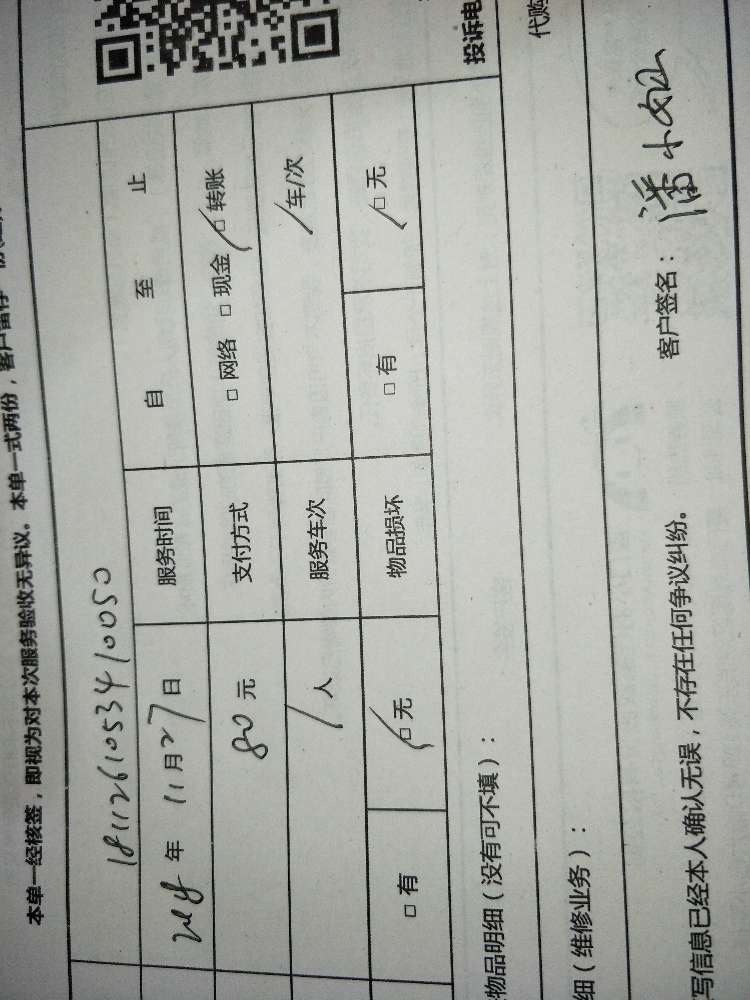 本单一经核签，即视为对本次服务验收无异议。本单一式两份，客户留存一份
1811261053410050
2018年 11月27日 服务时间 自 至 止
80元 支付方式 □网络 □现金 □转账
1人 服务车次 /车/次
□有 □无 物品损坏 □有 □无
投诉电
物品明细（没有可不填）：
代购
细（维修业务）：
客户签名：潘小
写信息已经本人确认无误，不存在任何争议纠纷。